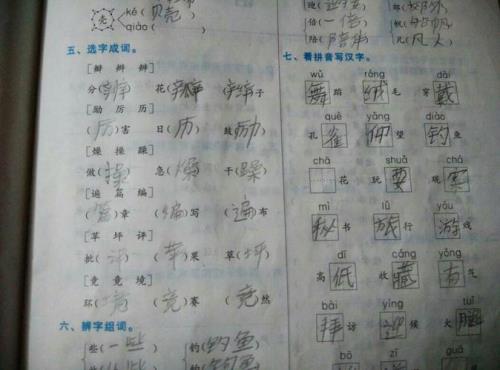 ké(贝壳
壳
qiào(
倍(一倍
五、选字成词。
分(辨) 花(瓣) (辫)子
[励 厉 历]
(厉)害 日(历) 鼓(励)
[燥 操 躁]
做(操) 急(燥) 干(躁)
[遍 篇 编]
(篇)章 (编)写 (遍)布
[苹 坪 评]
批(评) (苹)果 草(坪)
[竞 竟 境]
环(境) (竞)赛 (竟)然
六、辨字组词。
些(一些) 钓(钓鱼)
七、看拼音写汉字。
wǔ róng dài
舞蹈 绒毛 穿戴
què yǎng diào
孔雀 仰望 钓鱼
chā shuǎ chá
花 玩耍 观察
mì lǚ yóu
秘书 旅行 游戏
dī cáng yǒng
高低 收藏
bài yíng tuǐ
拜访 迎候 火腿
bō zī guā